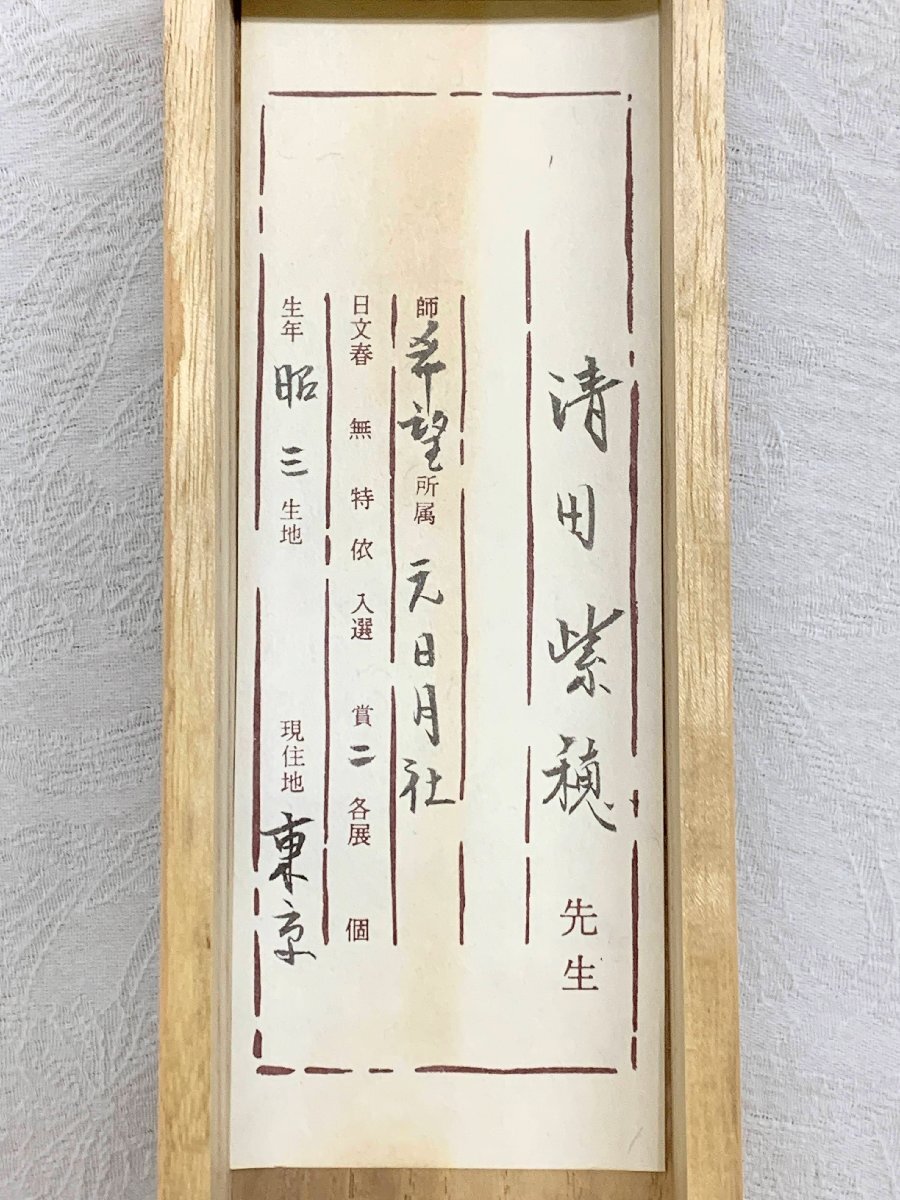 清田紫穂先生
師 希望 所属 元日月社
日文春 無 特 依 入選 賞 二 各展 個
生年 昭三 生地 現住地 東京